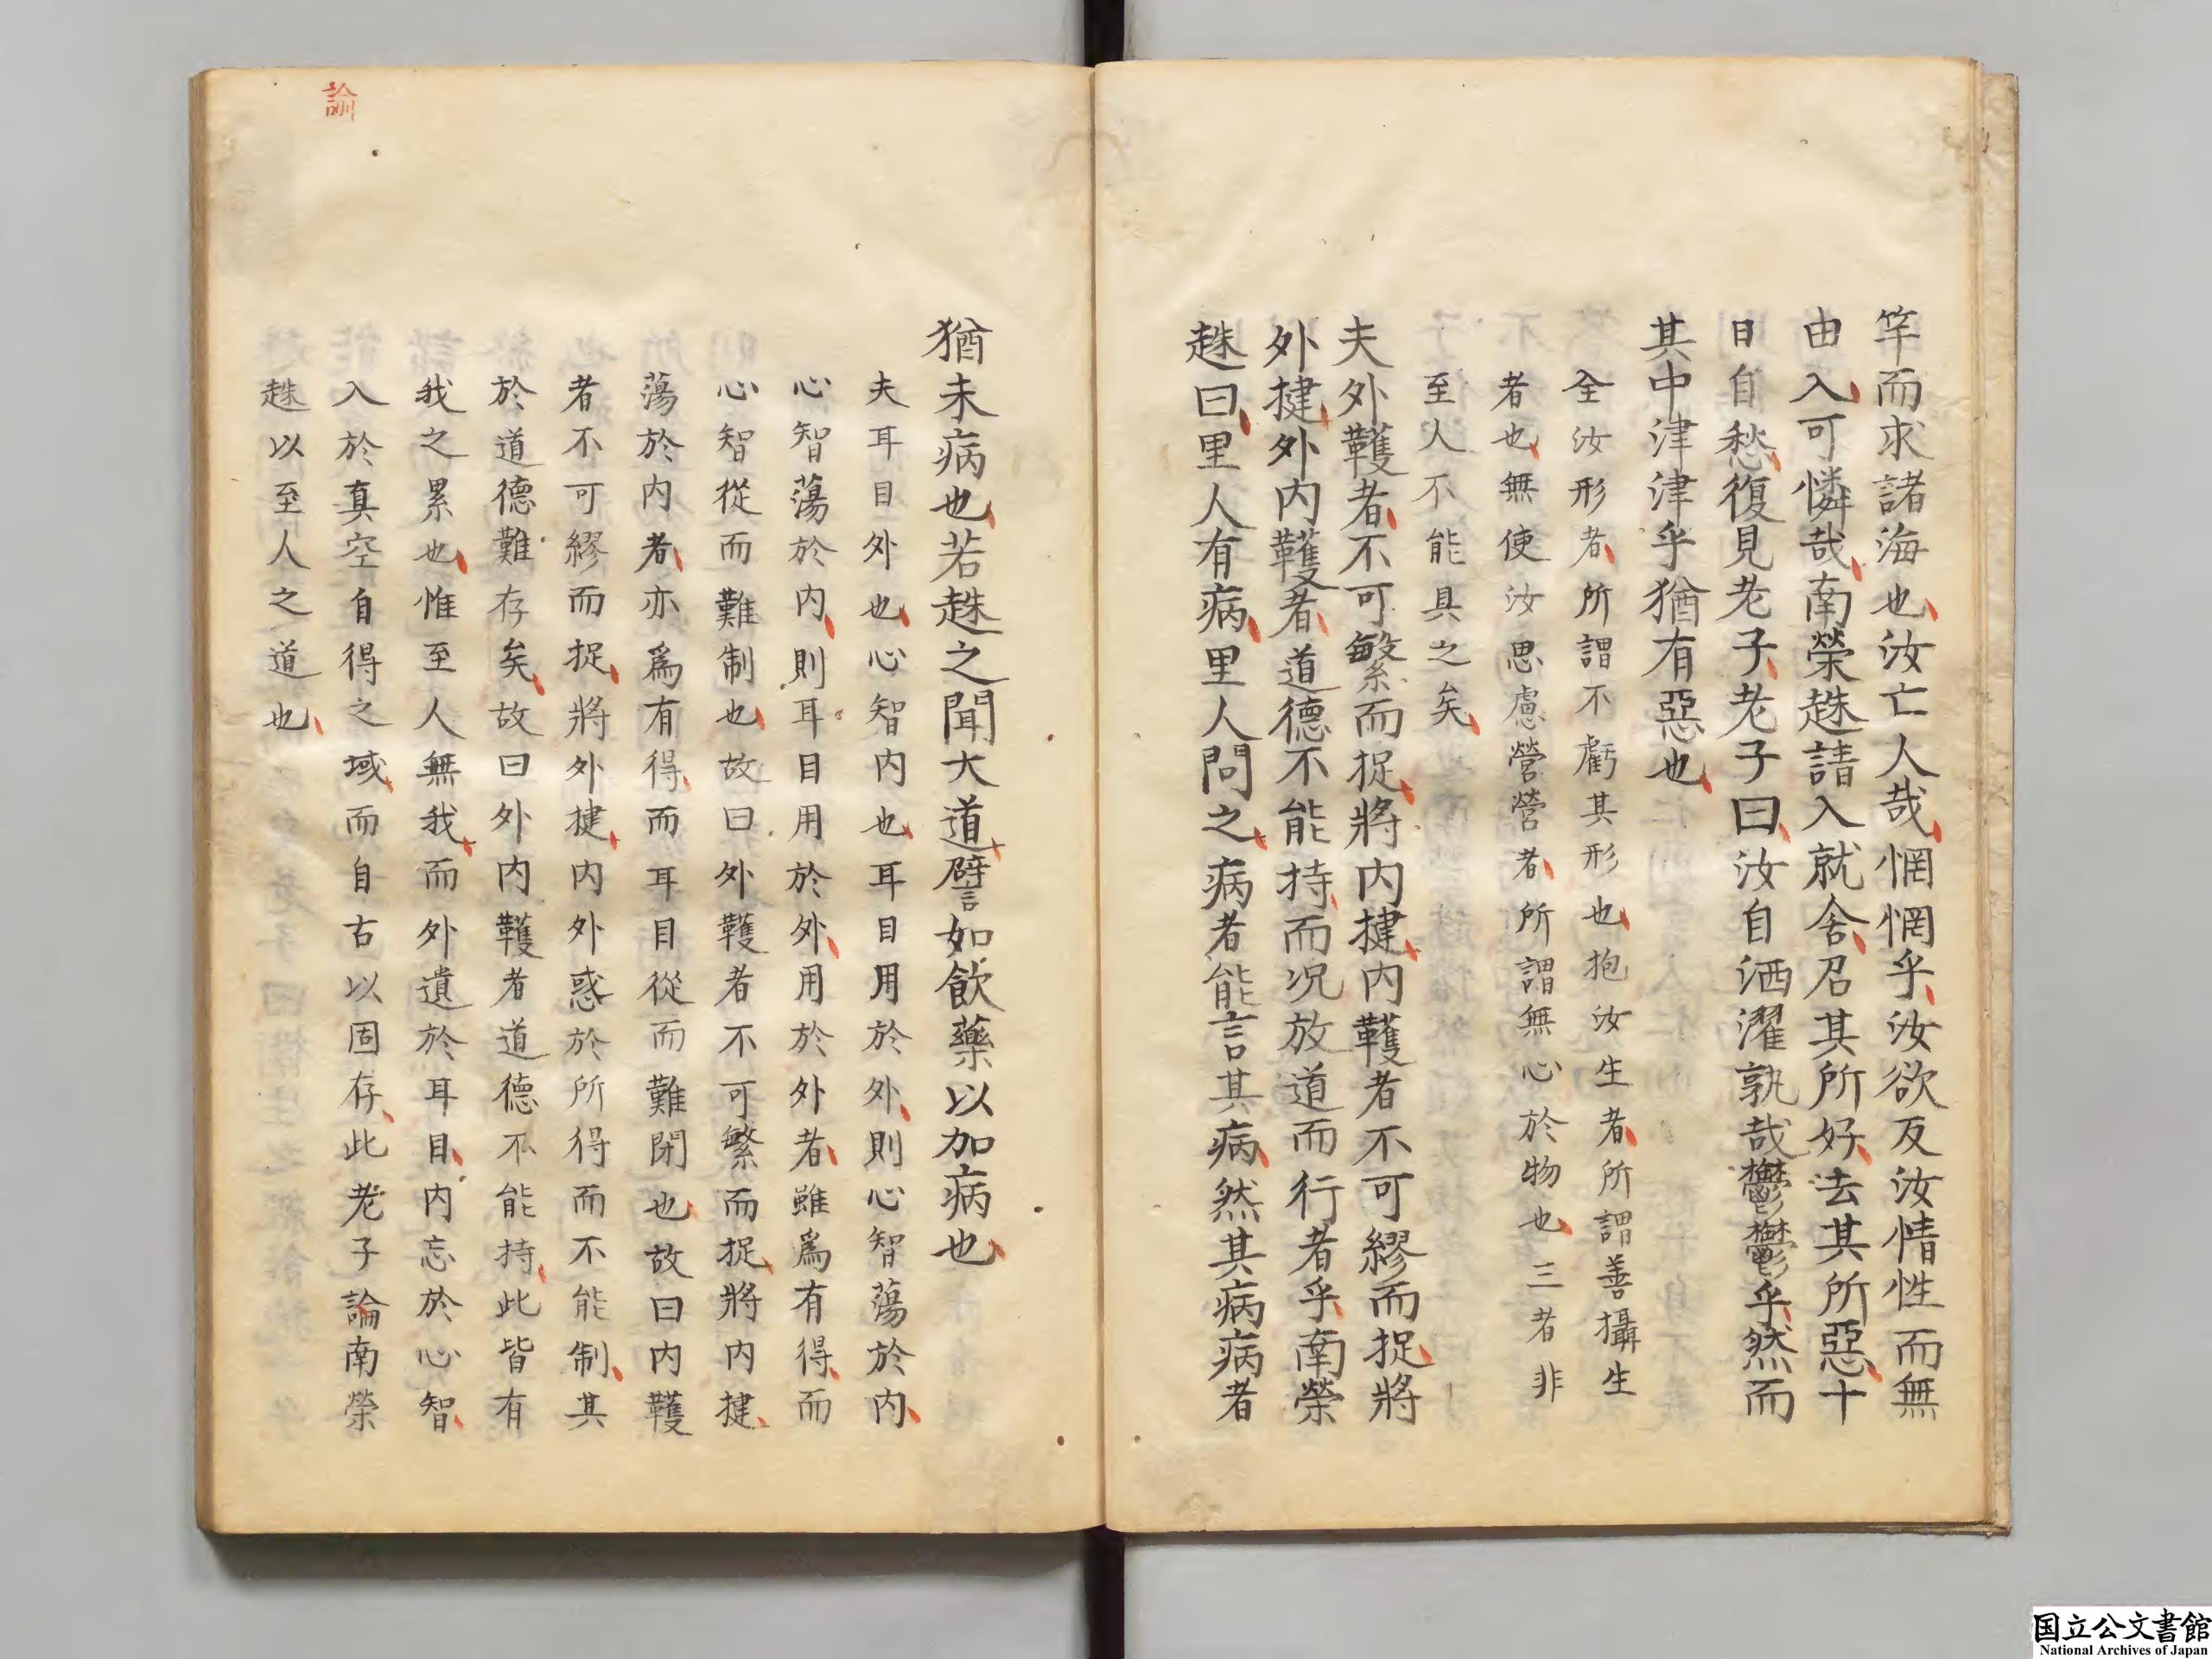 竿而求諸海也汝亡人哉惘惘乎汝欲反汝情性而無
由入可憐哉南榮趎請入就舍召其所好去其所惡十
日自愁復見老子老子曰汝自洒濯孰哉鬱鬱乎然而
其中津津乎猶有惡也
全汝形者所謂不虧其形也抱汝生者所謂善攝生
者也無使汝思慮營營者所謂無心於物也三者非
至人不能具之矣
夫外韄者不可繁而捉將內揵內韄者不可繆而捉將
外揵外內韄者道德不能持而況放道而行者乎南榮
趎曰里人有病里人問之病者能言其病然其病病者
猶未病也若趎之聞大道譬如飲藥以加病也
夫耳目外也心智內也耳目用於外則心智蕩於內
心智蕩於內則耳目用於外用於外者雖爲有得而
心智從而難制也故曰外韄者不可繁而捉將內揵
蕩於內者亦爲有得而耳目從而難閉也故曰內韄
者不可繆而捉將外揵內外惑於所得而不能制其
於道德難存矣故曰外內韄者道德不能持此皆有
我之累也惟至人無我而外遺於耳目內忘於心智
入於真空自得之域而自古以固存此老子論南榮
趎以至人之道也
論
国立公文書館
National Archives of Japan